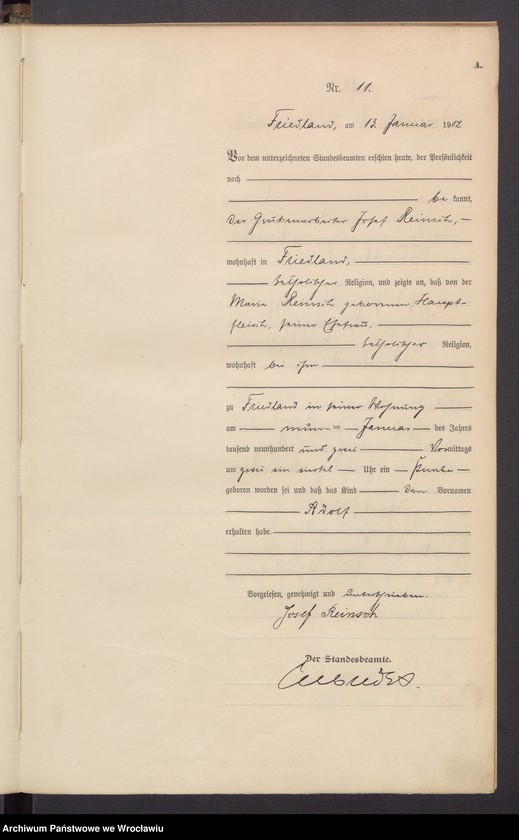 A.
Nr. 11.
Friedland, am 13. Januar 1902
Vor dem unterzeichneten Standesbeamten erschien heute, der Persönlichkeit
nach
be kannt,
der Grubenarbeiter Josef Reinsch,
wohnhaft in Friedland,
katholischer Religion, und zeigte an, daß von der
Maria Reinsch geborenen Haupt-
fleisch, seiner Ehefrau,
katholischer Religion,
wohnhaft bei ihm
zu Friedland in seiner Wohnung
am neun ten Januar des Jahres
tausend neunhundert und zwei Vormittags
um zwei ein viertel Uhr ein Knabe
geboren worden sei und daß das Kind den Vornamen
Adolf
erhalten habe.
Vorgelesen, genehmigt und unterschrieben.
Josef Reinsch
Der Standesbeamte.
Archiwum Państwowe we Wrocławiu